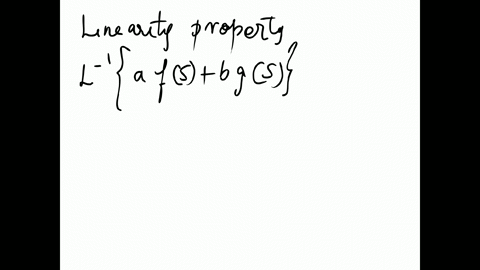 Linearity property
L⁻¹{a f(S) + b g(S)}